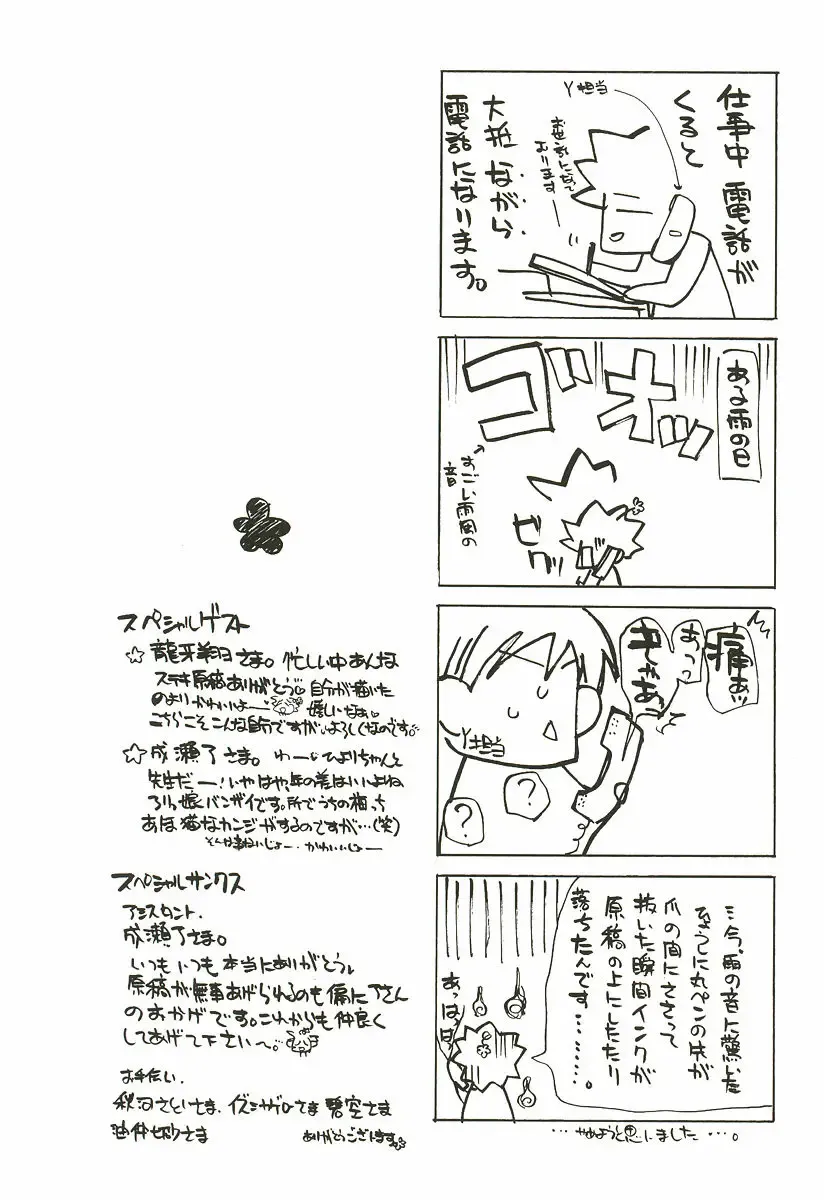 仕事中 電話が
くると
Y担当
お世話になって
おります—
大抵ながら
電話になります。
ある雨の日
ゴオッ
すごい雨風の
音
ビクゥ
痛ぁッ
あっっ
きゃあっ
Y担当
?
?
…今、雨の音に驚いた
ひょうしに丸ペンの先が
爪の間にささって
抜いた瞬間インクが
原稿の上にしたたり
落ちたんです………。
あっはっはっ
…やめようと思いました…。
スペシャルゲスト
☆龍牙翔さま。忙しい中あんな
ステキ原稿ありがとう 自分が描いた
のよりかわいいよー 嬉しいなぁ
こちらこそこんな自分ですが、よろしくなのです。
☆成瀬了さま。わー ひよりちゃんと
先生だー!いやはや、年の差はいいよね
ろりぃ娘バンザイです。所でうちの
あほ猫なカンジがするのですが…(笑)
かわいいよー
スペシャルサンクス
アシスタント、
成瀬了さま。
いつもいつも本当にありがとう。
原稿が無事あげられるのも偏に了さん
のおかげです。これからも仲良く
してあげて下さい〜。
お手伝い、
秋河さといさま、イズミサゲローさま 碧空さま
さま
ありがとうございます